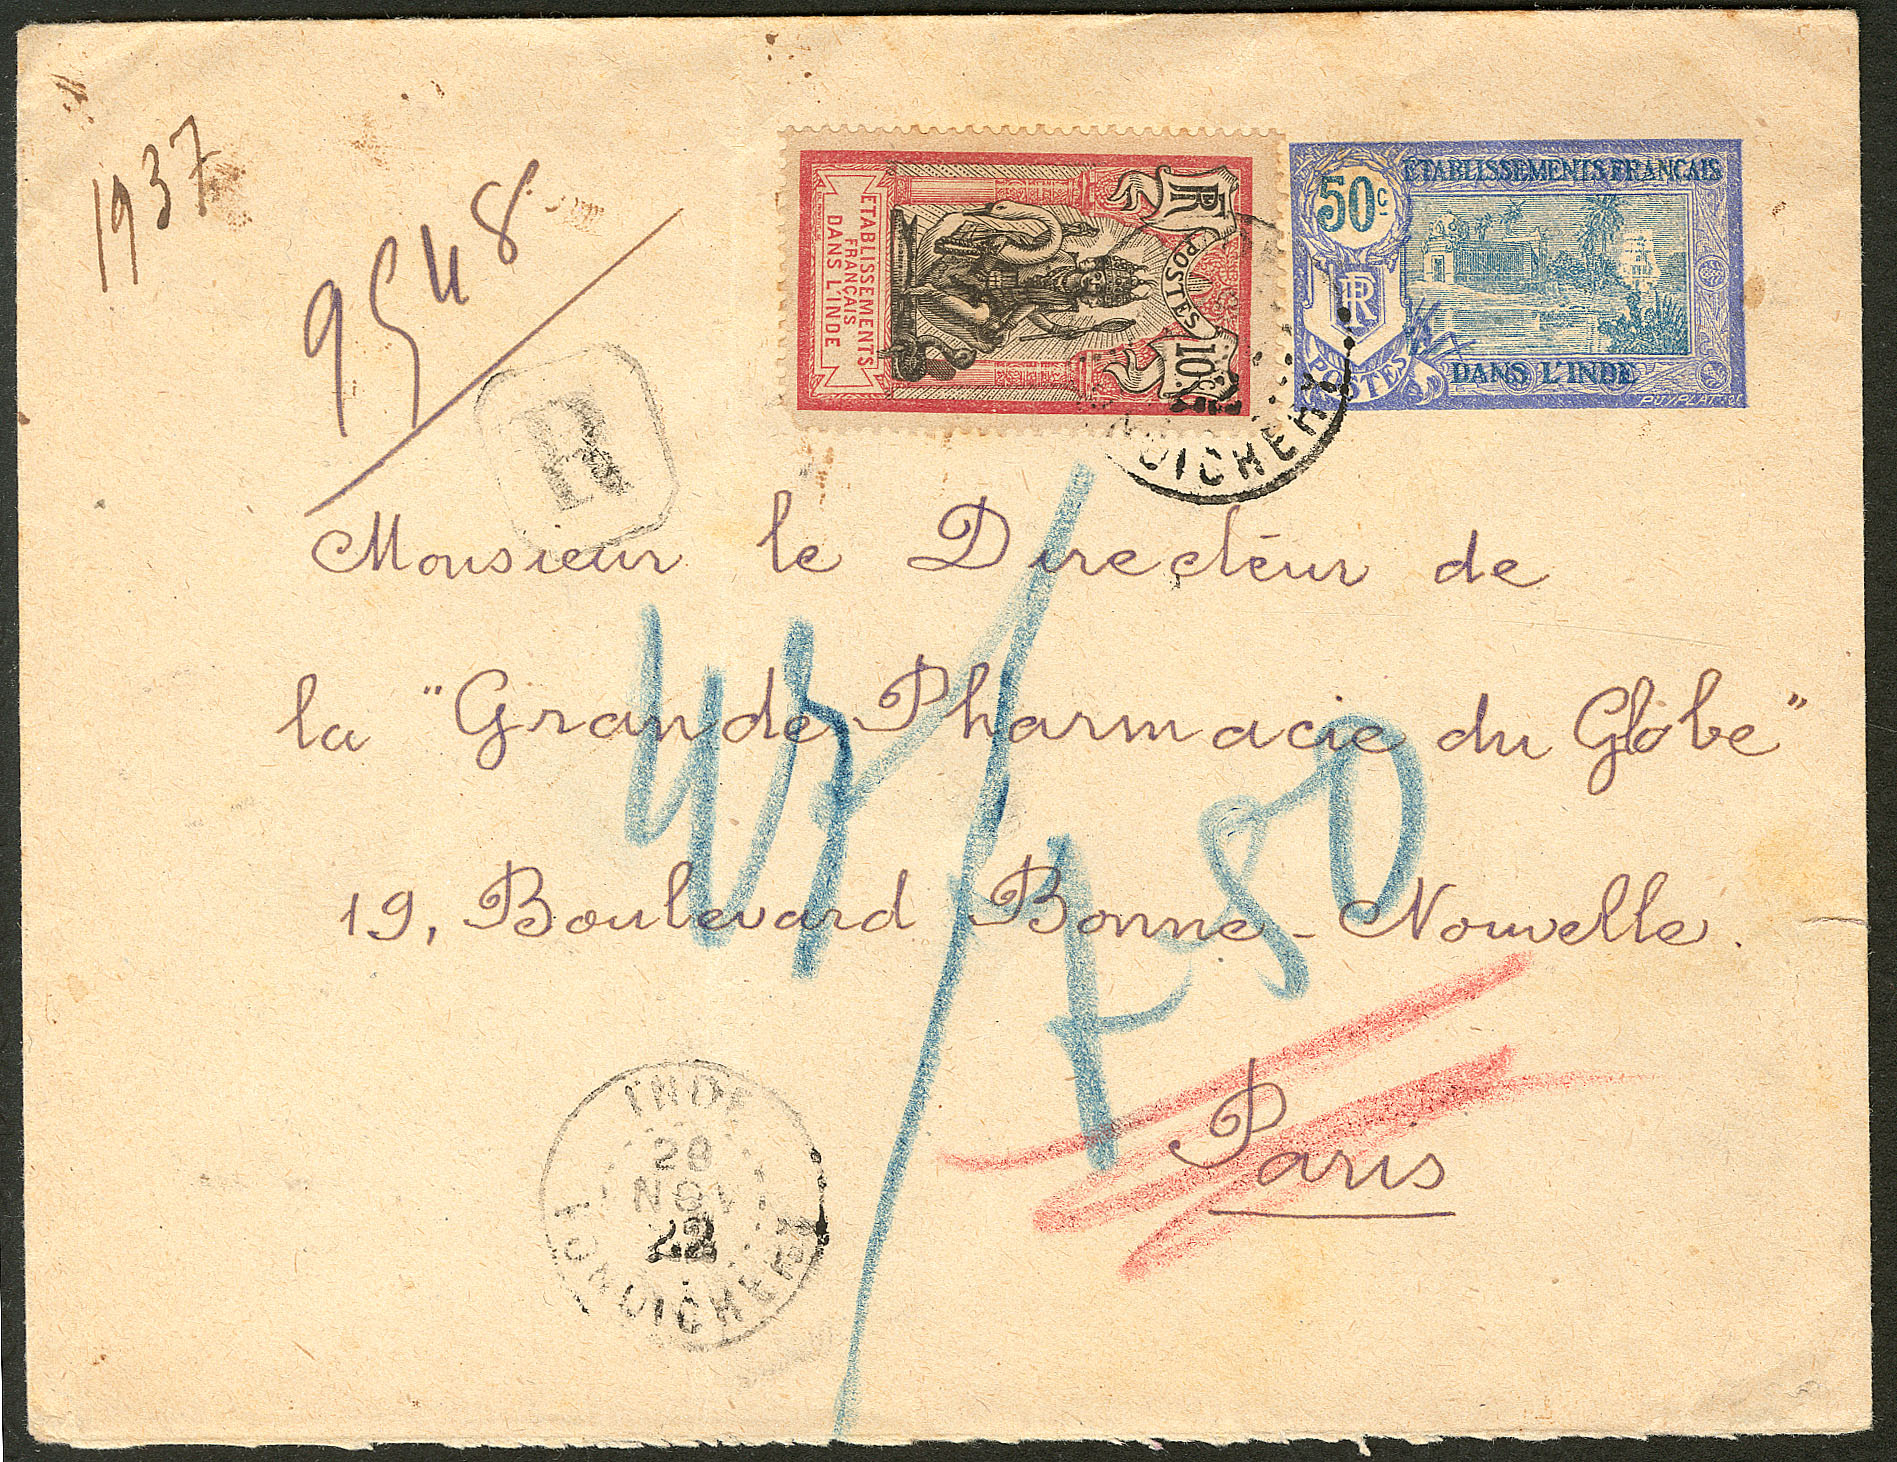 1937
9548
R
ETABLISSEMENTS
FRANÇAIS
DANS L'INDE
RF
POSTES
10c.
50c.
ÉTABLISSEMENTS FRANÇAIS
RF
POSTES
DANS L'INDE
Monsieur le Directeur de
la "Grande Pharmacie du Globe"
19, Boulevard Bonne-Nouvelle.
Paris
INDE
28
NOV
22